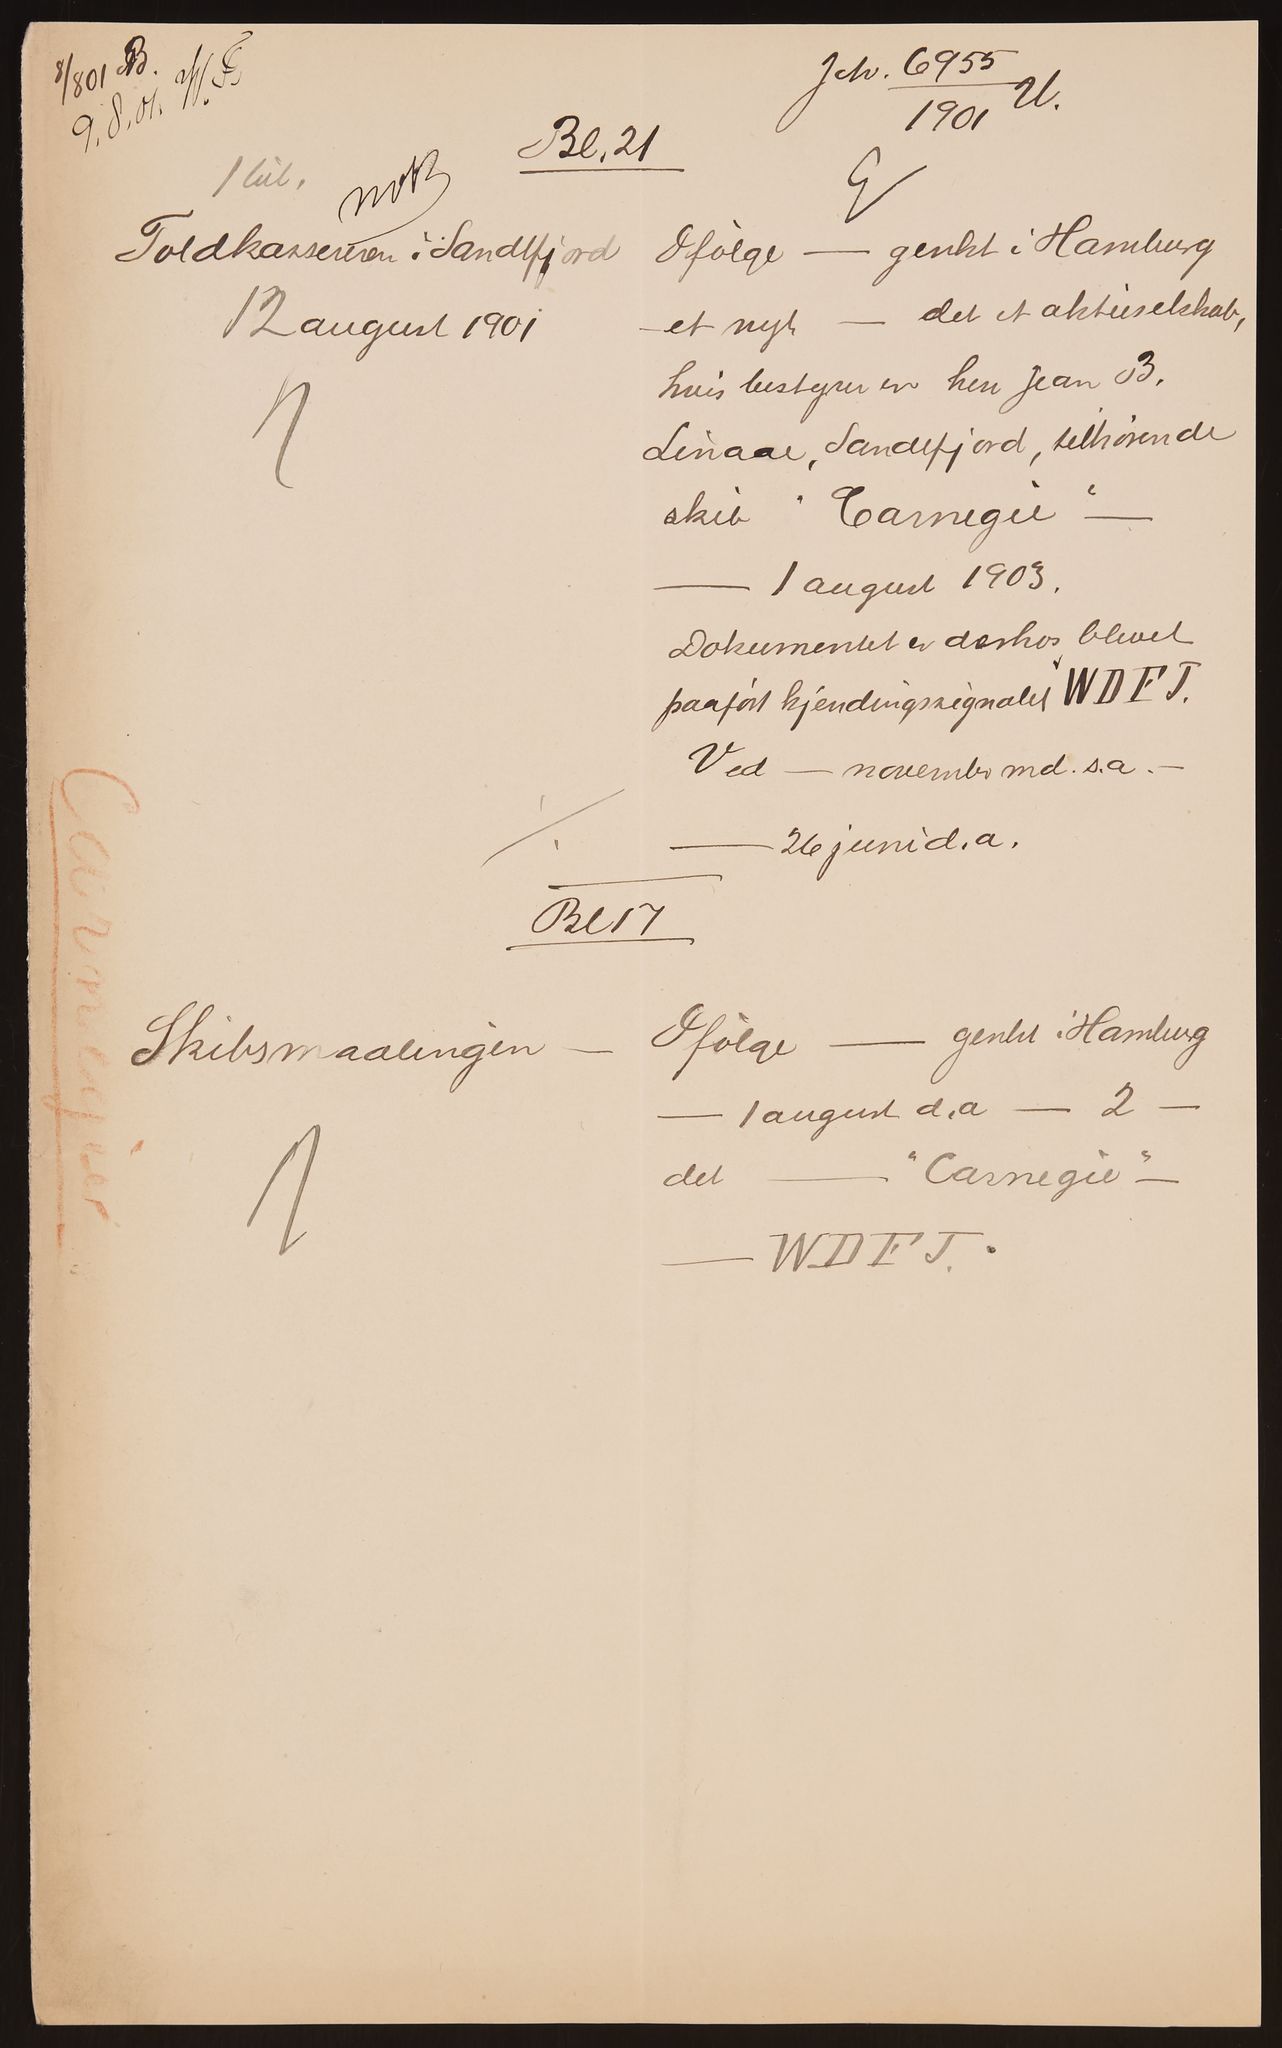 8/8 01 B.
9.8.01.
Jnr. 6955
1901 U.
Bl. 21
1 bil.
Toldkassereren i Sandefjord
12 august 1901
Ifølge — genlkt i Hamburg
— et nyt — det et aktieselskab,
hvis bestyrer er herr Jean B.
Linaae, Sandefjord, tilhørende
skib "Carnegie" —
— 1 august 1903.
Dokumentet er derhos blevet
paaført kjendingssignalet WDFT.
Ved — novembr md. s.a. —
— 26 juni d.a.
Bl 17
Skibsmaalingen —
Ifølge — genlkt i Hamburg
— 1 august d.a — 2 —
det — "Carnegie" —
— WDFT.
Carnegie